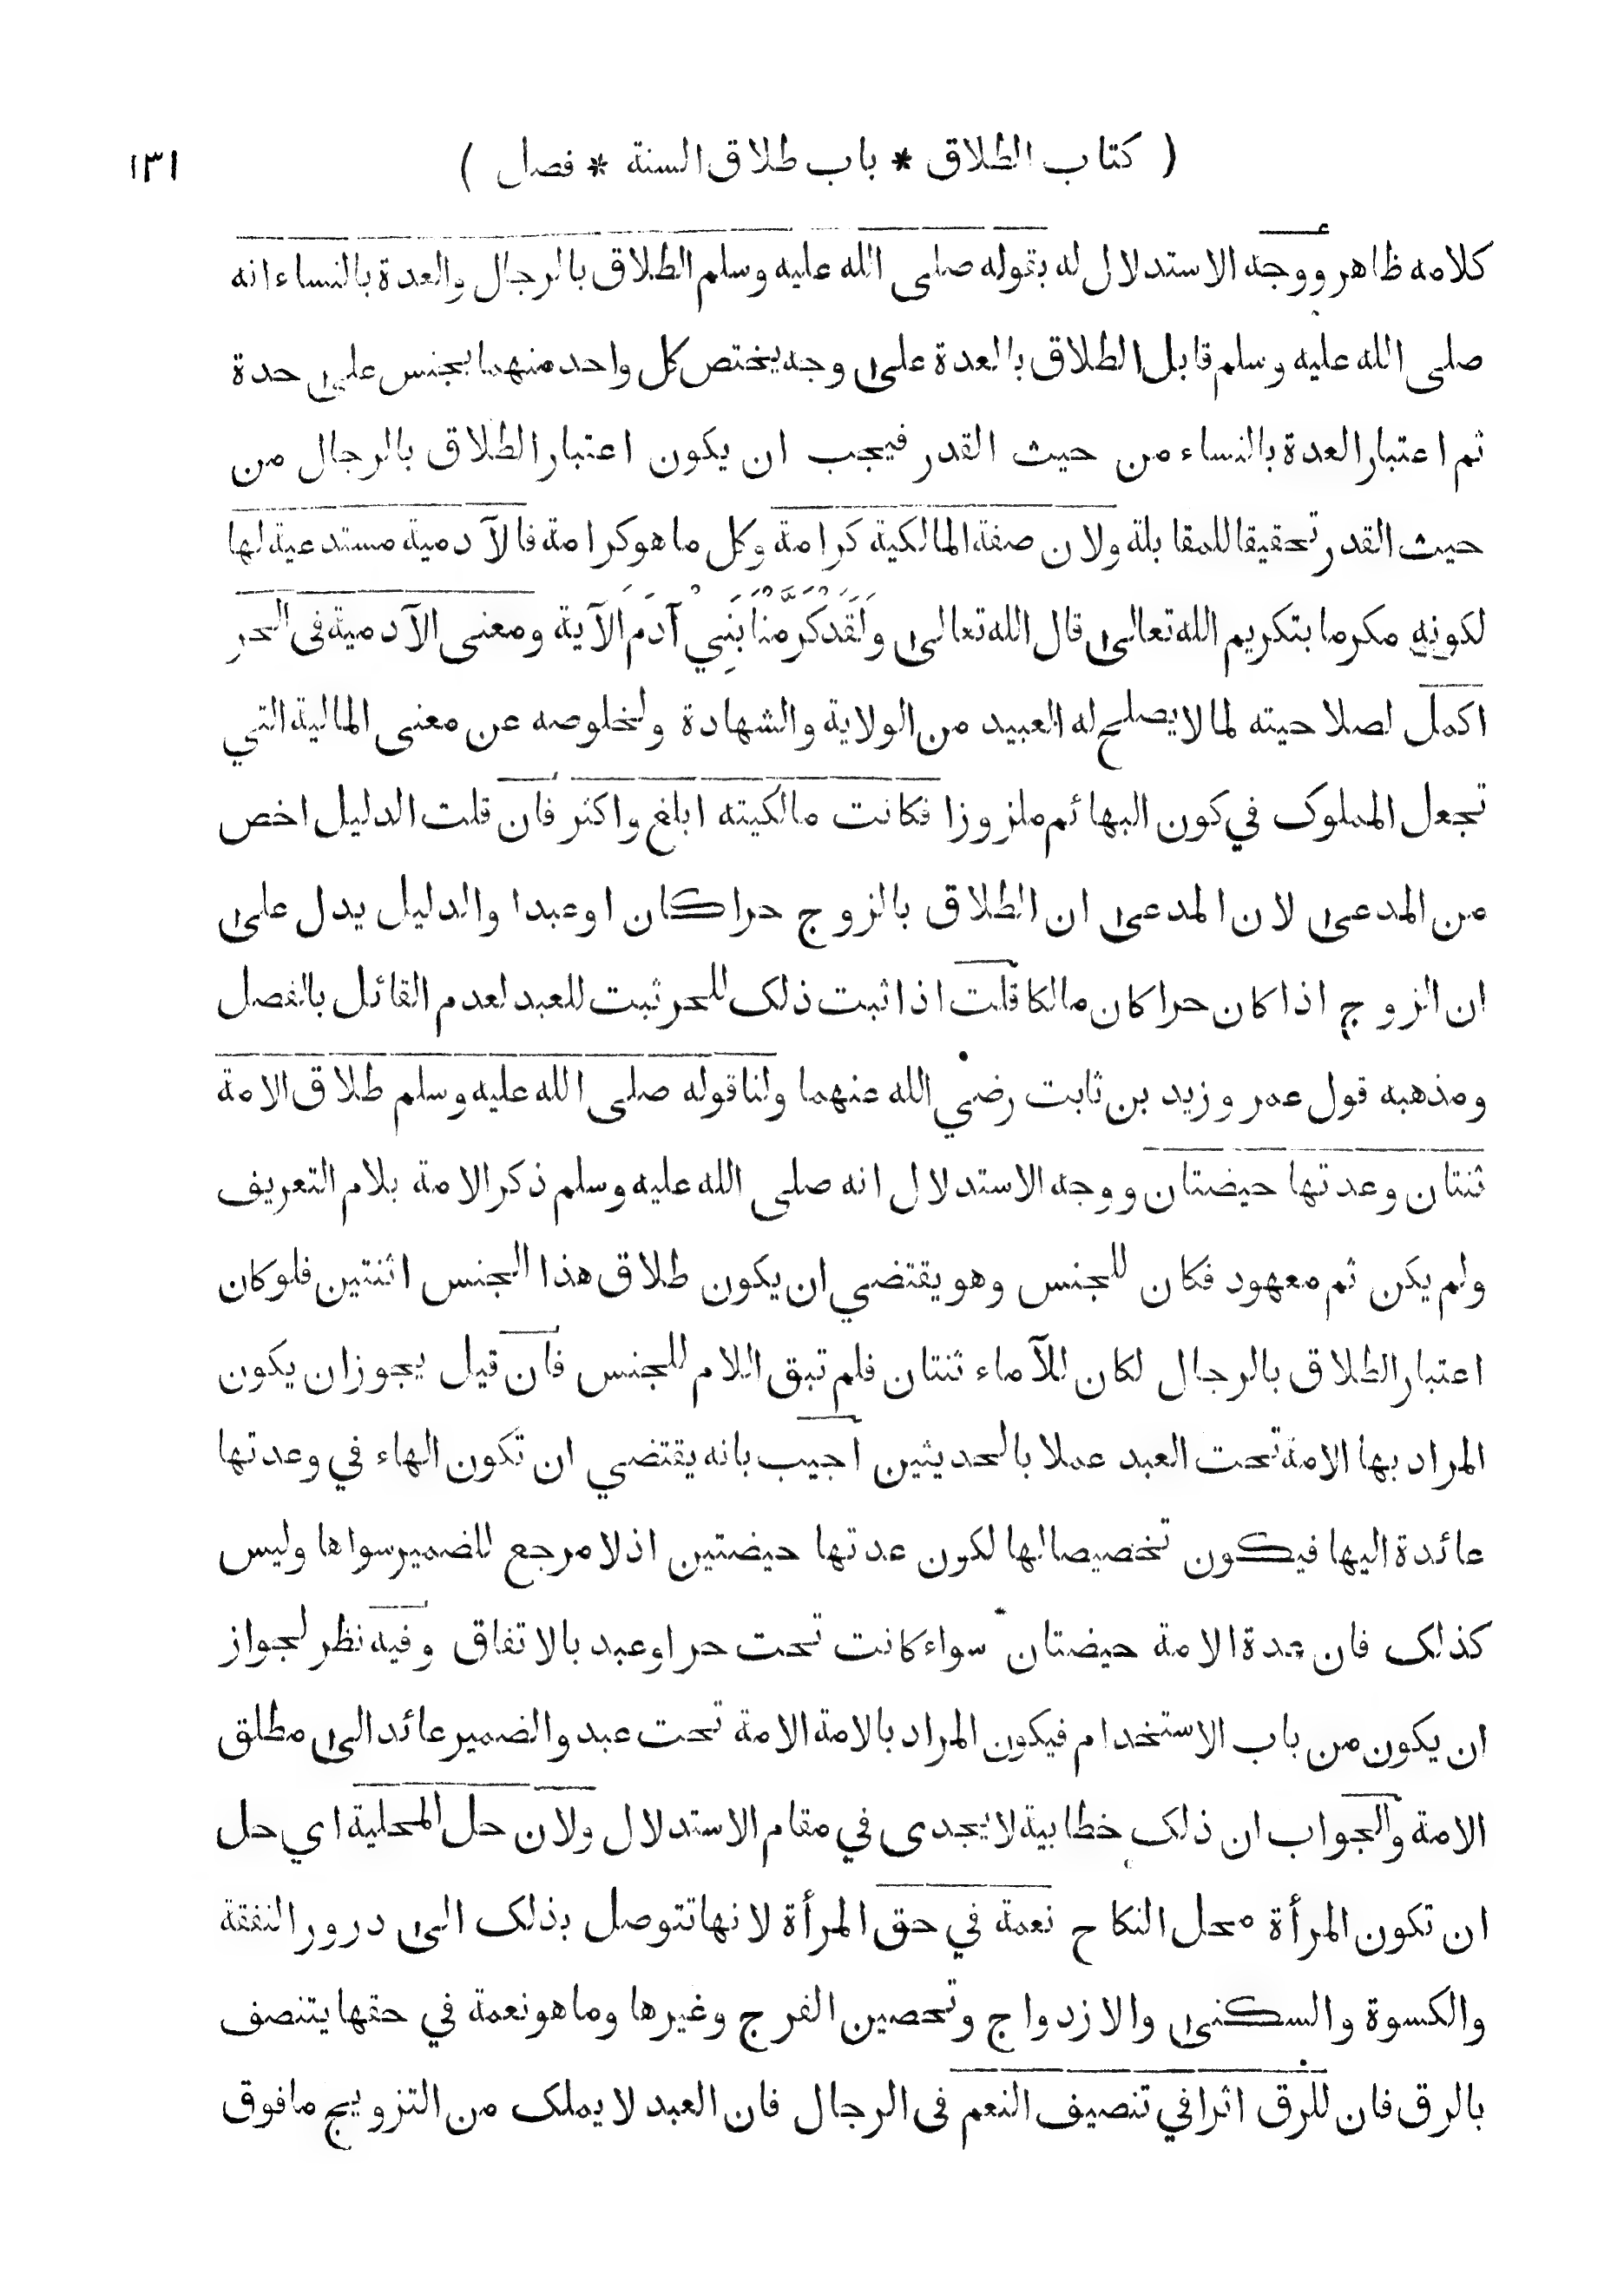 ( كتاب الطلاق * باب طلاق السنة * فصل ) ١٣١
كلامه ظاهر ووجه الاستدلال له بقوله صلى الله عليه وسلم الطلاق بالرجال والعدة بالنساء انه
صلى الله عليه وسلم قابل الطلاق بالعدة على وجه يختص كل واحد منهما بجنس على حدة
ثم اعتبار العدة بالنساء من حيث القدر فيجب ان يكون اعتبار الطلاق بالرجال من
حيث القدر تحقيقا للمقابلة ولان صفة المالكية كرامة وكل ما هو كرامة فالآدمية مستدعية لها
لكونه مكرما بتكريم الله تعالى قال الله تعالى وَلَقَدْ كَرَّمْنَا بَنِي آدَمَ الآية ومعنى الآدمية فى الحر
اكمل لصلاحيته لما لا يصلح له العبيد من الولاية والشهادة ولخلوصه عن معنى المالية التي
تجعل المملوك في كون البهائم ملزوزا فكانت مالكيته ابلغ واكثر فان قلت الدليل اخص
من المدعى لان المدعى ان الطلاق بالزوج حرا كان اوعبدا والدليل يدل على
ان الزوج اذا كان حرا كان مالكا قلت اذا ثبت ذلك للحر ثبت للعبد لعدم القائل بالفصل
ومذهبه قول عمر وزيد بن ثابت رضي الله عنهما ولنا قوله صلى الله عليه وسلم طلاق الامة
ثنتان وعدتها حيضتان ووجه الاستدلال انه صلى الله عليه وسلم ذكر الامة بلام التعريف
ولم يكن ثم معهود فكان للجنس وهو يقتضي ان يكون طلاق هذا الجنس اثنتين فلو كان
اعتبار الطلاق بالرجال لكان للآماء ثنتان فلم تبق اللام للجنس فان قيل يجوز ان يكون
المراد بها الامة تحت العبد عملا بالحديثين اجيب بانه يقتضي ان تكون الهاء في وعدتها
عائدة اليها فيكون تخصيصا لها لكون عدتها حيضتين اذ لا مرجع للضمير سواها وليس
كذلك فان عدة الامة حيضتان سواء كانت تحت حر اوعبد بالاتفاق وفيه نظر لجواز
ان يكون من باب الاستخدام فيكون المراد بالامة الامة تحت عبد والضمير عائد الى مطلق
الامة والجواب ان ذلك خطابية لا يجدى في مقام الاستدلال ولان حل المحلية اي حل
ان تكون المرأة محل النكاح نعمة في حق المرأة لانها تتوصل بذلك الى درور النفقة
والكسوة والسكنى والازدواج وتحصين الفرج وغيرها وما هو نعمة في حقها يتنصف
بالرق فان للرق اثرا في تنصيف النعم فى الرجال فان العبد لا يملك من التزويج ما فوق